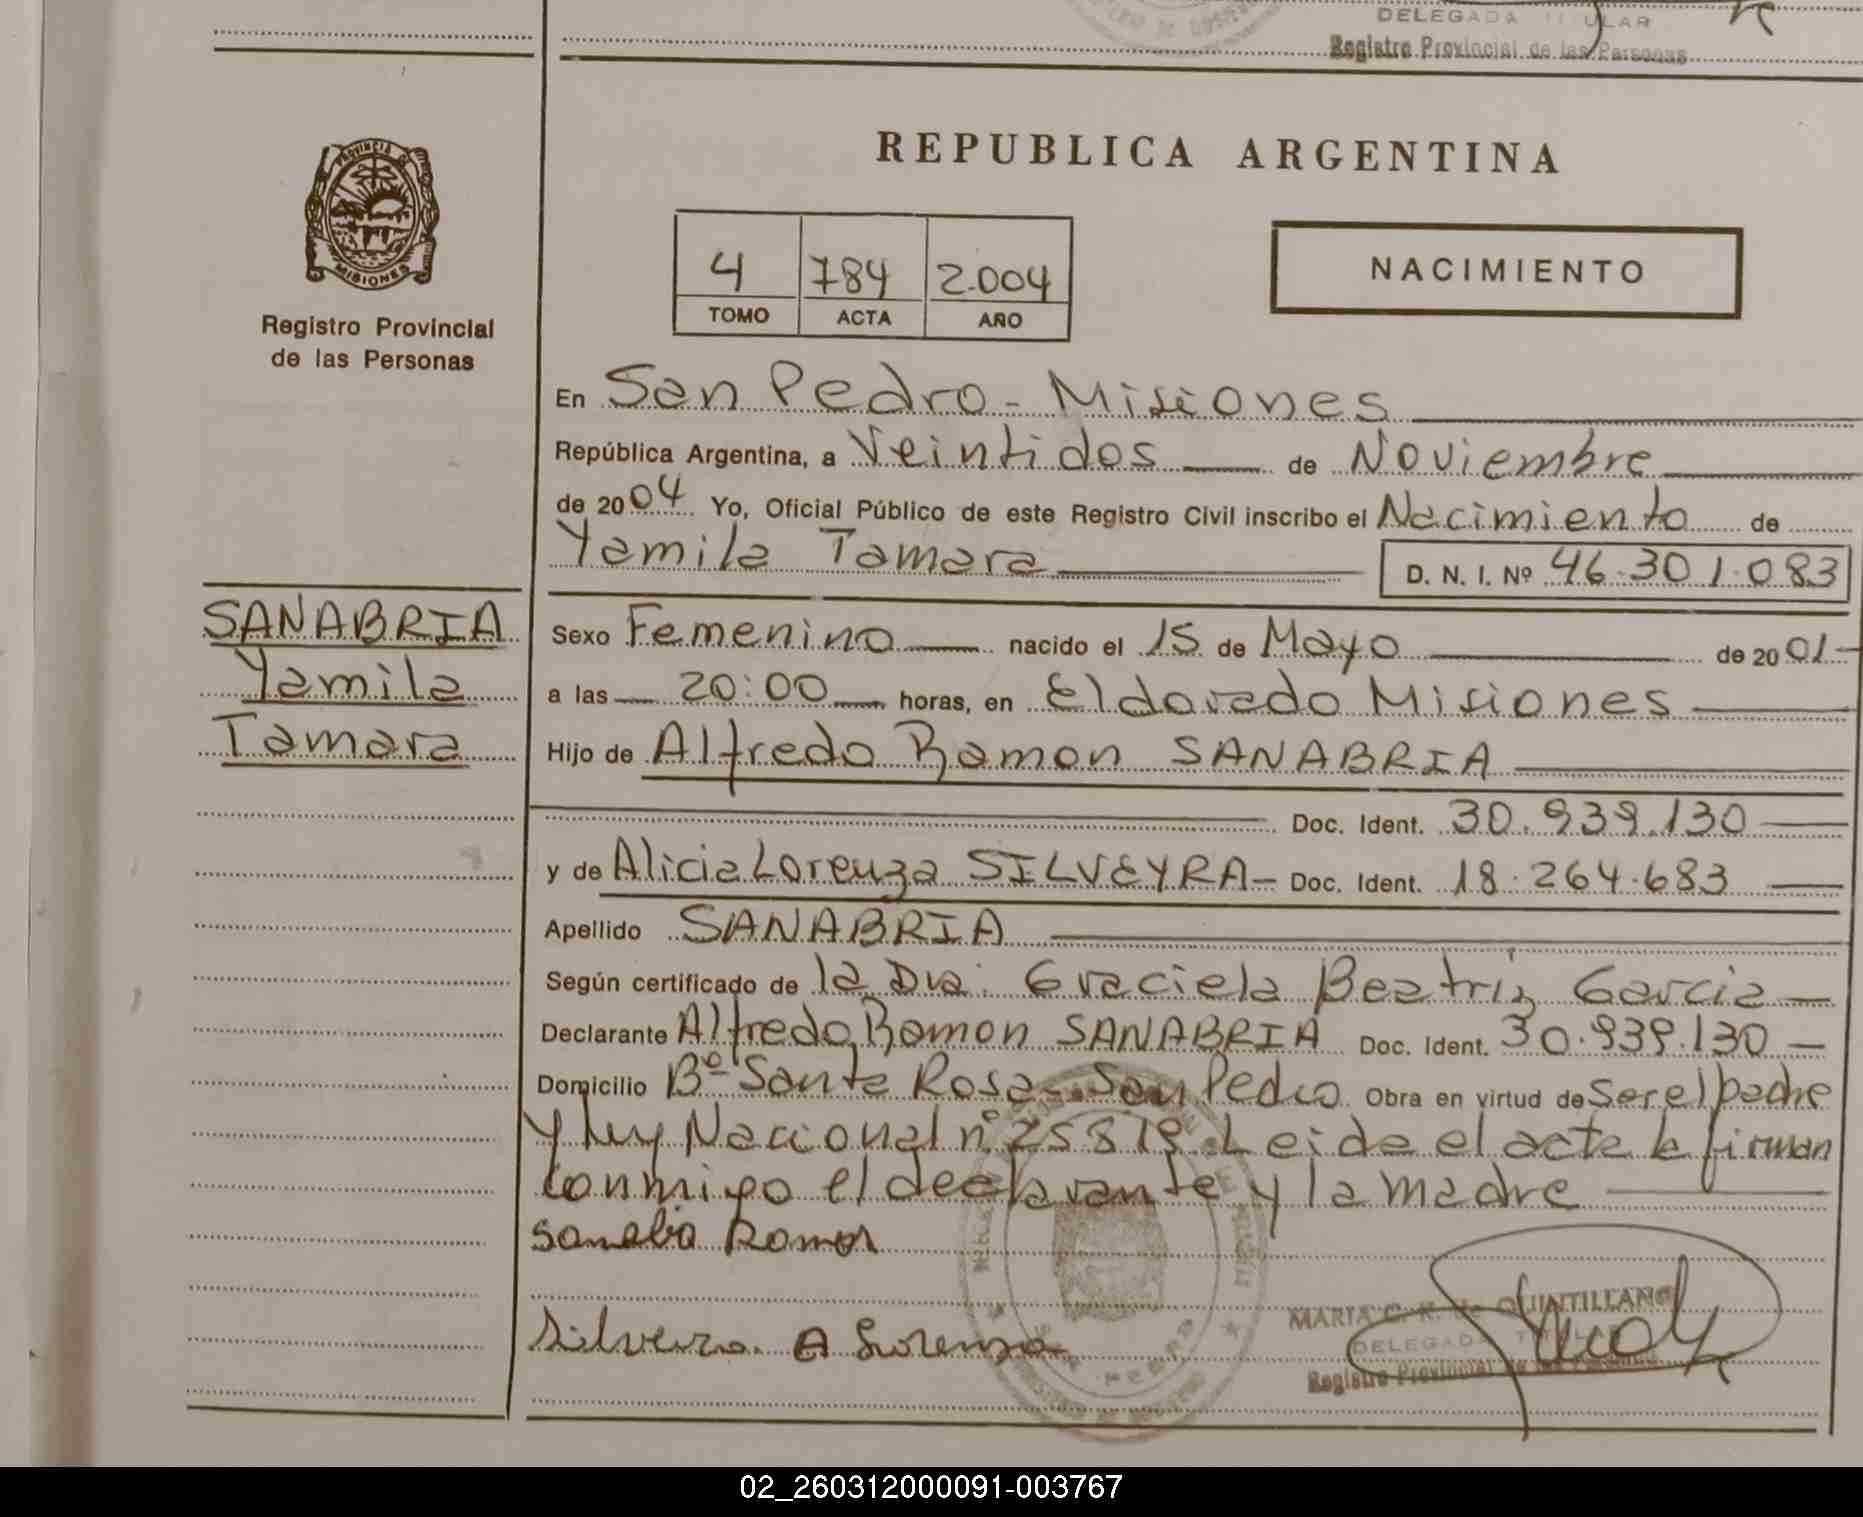 DELEGADA TITULAR
Registro Provincial de las Personas
PROVINCIA DE
MISIONES
Registro Provincial
de las Personas
REPUBLICA ARGENTINA
4 784 2.004
TOMO ACTA AÑO
NACIMIENTO
En San Pedro - Misiones
República Argentina, a Veintidos de Noviembre
de 2004 Yo, Oficial Público de este Registro Civil inscribo el Nacimiento de
Yamila Tamara D. N. I. Nº 46.301.083
SANABRIA
Yamila
Tamara
Sexo Femenino nacido el 15 de Mayo de 2001-
a las 20:00 horas, en Eldorado Misiones
Hijo de Alfredo Ramon SANABRIA
Doc. Ident. 30.939.130
y de Alicia Lorenza SILVEYRA- Doc. Ident. 18.264.683
Apellido SANABRIA
Según certificado de la Dra. Graciela Beatriz Garcia
Declarante Alfredo Ramon SANABRIA Doc. Ident. 30.939.130
Domicilio Bº Santa Rosa- San Pedro Obra en virtud de Ser el padre
y ley Nacional nº 25819 Leida el acta la firman
conmigo el declarante y la madre
Sanabria Ramon
Silveira A Lorenza
MARIA QUINTILLANO
DELEGADA TITULAR
Registro Provincial de las Personas
02_260312000091-003767